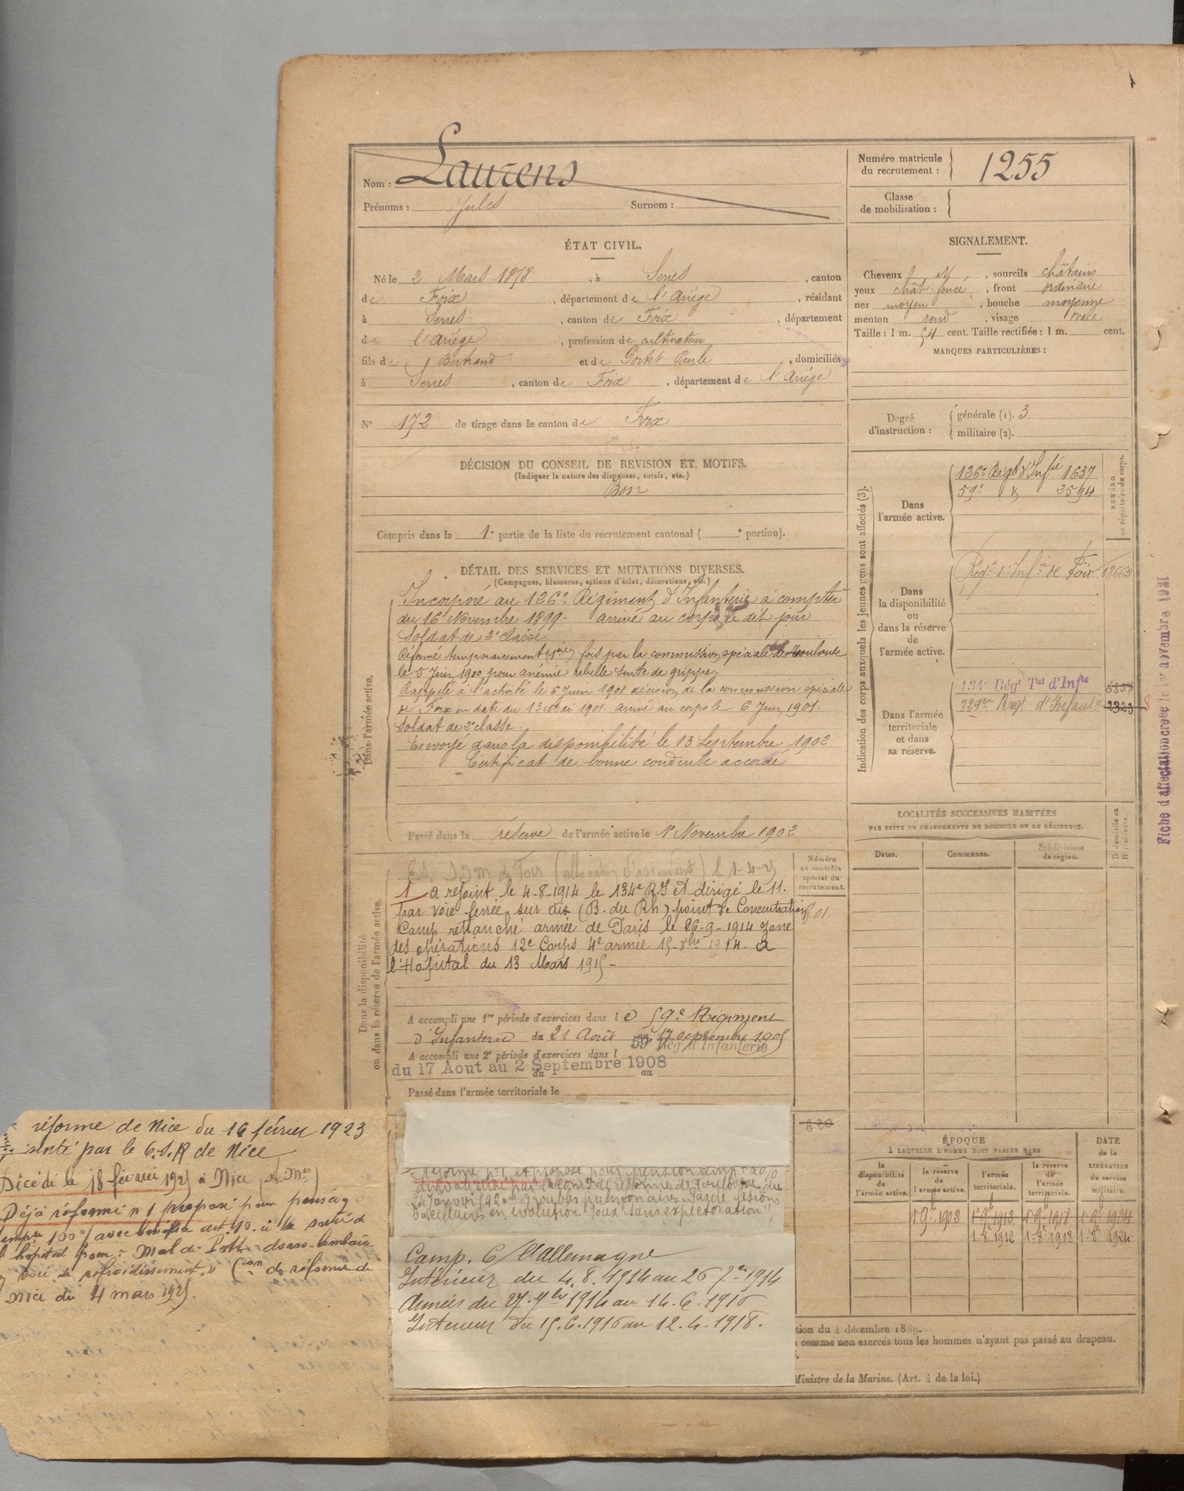 Nom : Laurens
Prénoms : Jules Surnom :
Numéro matricule
du recrutement : 1255
Classe
de mobilisation :
ÉTAT CIVIL.
Né le 2 Mars 1878, à Serres, canton
de Foix, département de l'Ariège, résidant
à Serres, canton de Foix, département
de l'Ariège, profession de cultivateur
fils de Bertrand et de Paule, domiciliés
à Serres, canton de Foix, département de l'Ariège
N° 172 de tirage dans le canton de Foix
SIGNALEMENT.
Cheveux, sourcils châtains
yeux chât. foncé, front ordinaire
nez moyen, bouche moyenne
menton rond, visage ovale
Taille : 1 m. 54 cent. Taille rectifiée : 1 m. cent.
MARQUES PARTICULIÈRES :
Degré
d'instruction :
générale (1). 3
militaire (2).
DÉCISION DU CONSEIL DE REVISION ET MOTIFS.
(Indiquer la nature des dispenses, sursis, etc.)
Bon
Compris dans la 1e partie de la liste du recrutement cantonal ( e portion).
DÉTAIL DES SERVICES ET MUTATIONS DIVERSES.
(Campagnes, blessures, actions d'éclat, décorations, etc.)
Dans l'armée active.
Incorporé au 126e Régiment d'Infanterie à compter
du 16 Novembre 1899. arrivé au corps le dit jour
Soldat de 2e classe
Réformé temporairement fois par la commission spéciale de Toulouse
le 5 Juin 1900 pour anémie rebelle suite de grippe
Rappelé à l'activité le 6 Juin 1901 décision de la commission spéciale
de Foix en date du 13 Mai 1901 arrivé au corps le 6 Juin 1901
Soldat de 2e classe
Envoyé dans la disponibilité le 13 Septembre 1902
Certificat de bonne conduite accordé
Passé dans la réserve de l'armée active le 1er Novembre 1902
Indication des corps auxquels les jeunes gens sont affectés (3).
NUMÉRO
au répertoire du corps.
Dans
l'armée active.
126e Régt d'Infie 1637
59e d° 2594
Dans
la disponibilité
ou
dans la réserve
de
l'armée active.
Régt d'Infie de Foix
Dans l'armée
territoriale
et dans
sa réserve.
Régt Tal d'Infie
Régt d'Infant
Fiche d'affectation créée le 1er novembre 1921
LOCALITÉS SUCCESSIVES HABITÉES
PAR SUITE DE CHANGEMENTS DE DOMICILE OU DE RÉSIDENCE.
Dates. Communes. Subdivisions
de région. D domicile ou
R résidence.
Dans la disponibilité
ou dans la réserve de l'armée active.
Numéro
au contrôle
spécial du
recrutement.
a rejoint le 4-8-1914 le 134e R.I et dirigé le 11.
Par voie ferrée sur (B. du Rh) point de Concentration
Camp retranché armée de Paris le 26-9-1914 zone
des opérations 12e Corps 4e armée 15 1914. à
l'Hopital du 13 Mars 1915 -
A accompli une 1re période d'exercices dans le 59e Régiment
d'Infanterie du 21 Août au 17 septembre 1905
A accompli une 2e période d'exercices dans l 59e Rég. d'Infanterie
du 17 Aout au 2 Septembre 1908
Passé dans l'armée territoriale le
réforme de Nice du 16 février 1923
par le C.S.R de Nice
Décédé le 18 février 1925 à Nice (A.Mmes)
Déjà réformé n° 1 proposé pour pension
100% avec bénéfice art 10. à la suite de
l'hôpital pour : Mal de Pott dorso-lombaire
de refroidissement. (Con de réforme de
Nice du 4 mars 1925.
réforme n° 1 et proposé pour pension
Con de réforme de Toulouse du
bacillaires en évolution toux sans expectoration
Camp. C/ l'allemagne
Intérieur du 4.8.1914 au 26 7bre 1914
Armées du 27.7bre 1914 au 14.6.1916
Intérieur du 15.6.1916 au 12.4.1918.
ÉPOQUE
À LAQUELLE L'HOMME DOIT PASSER DANS
DATE
de la
LIBÉRATION
du service
militaire.
la
disponibilité
de
l'armée active.
la réserve
de
l'armée active.
l'armée
territoriale.
la réserve
de
l'armée
territoriale.
tion du 4 décembre 1889.
comme non exercés tous les hommes n'ayant pas passé au drapeau.
Ministre de la Marine. (Art. 4 de la loi.)